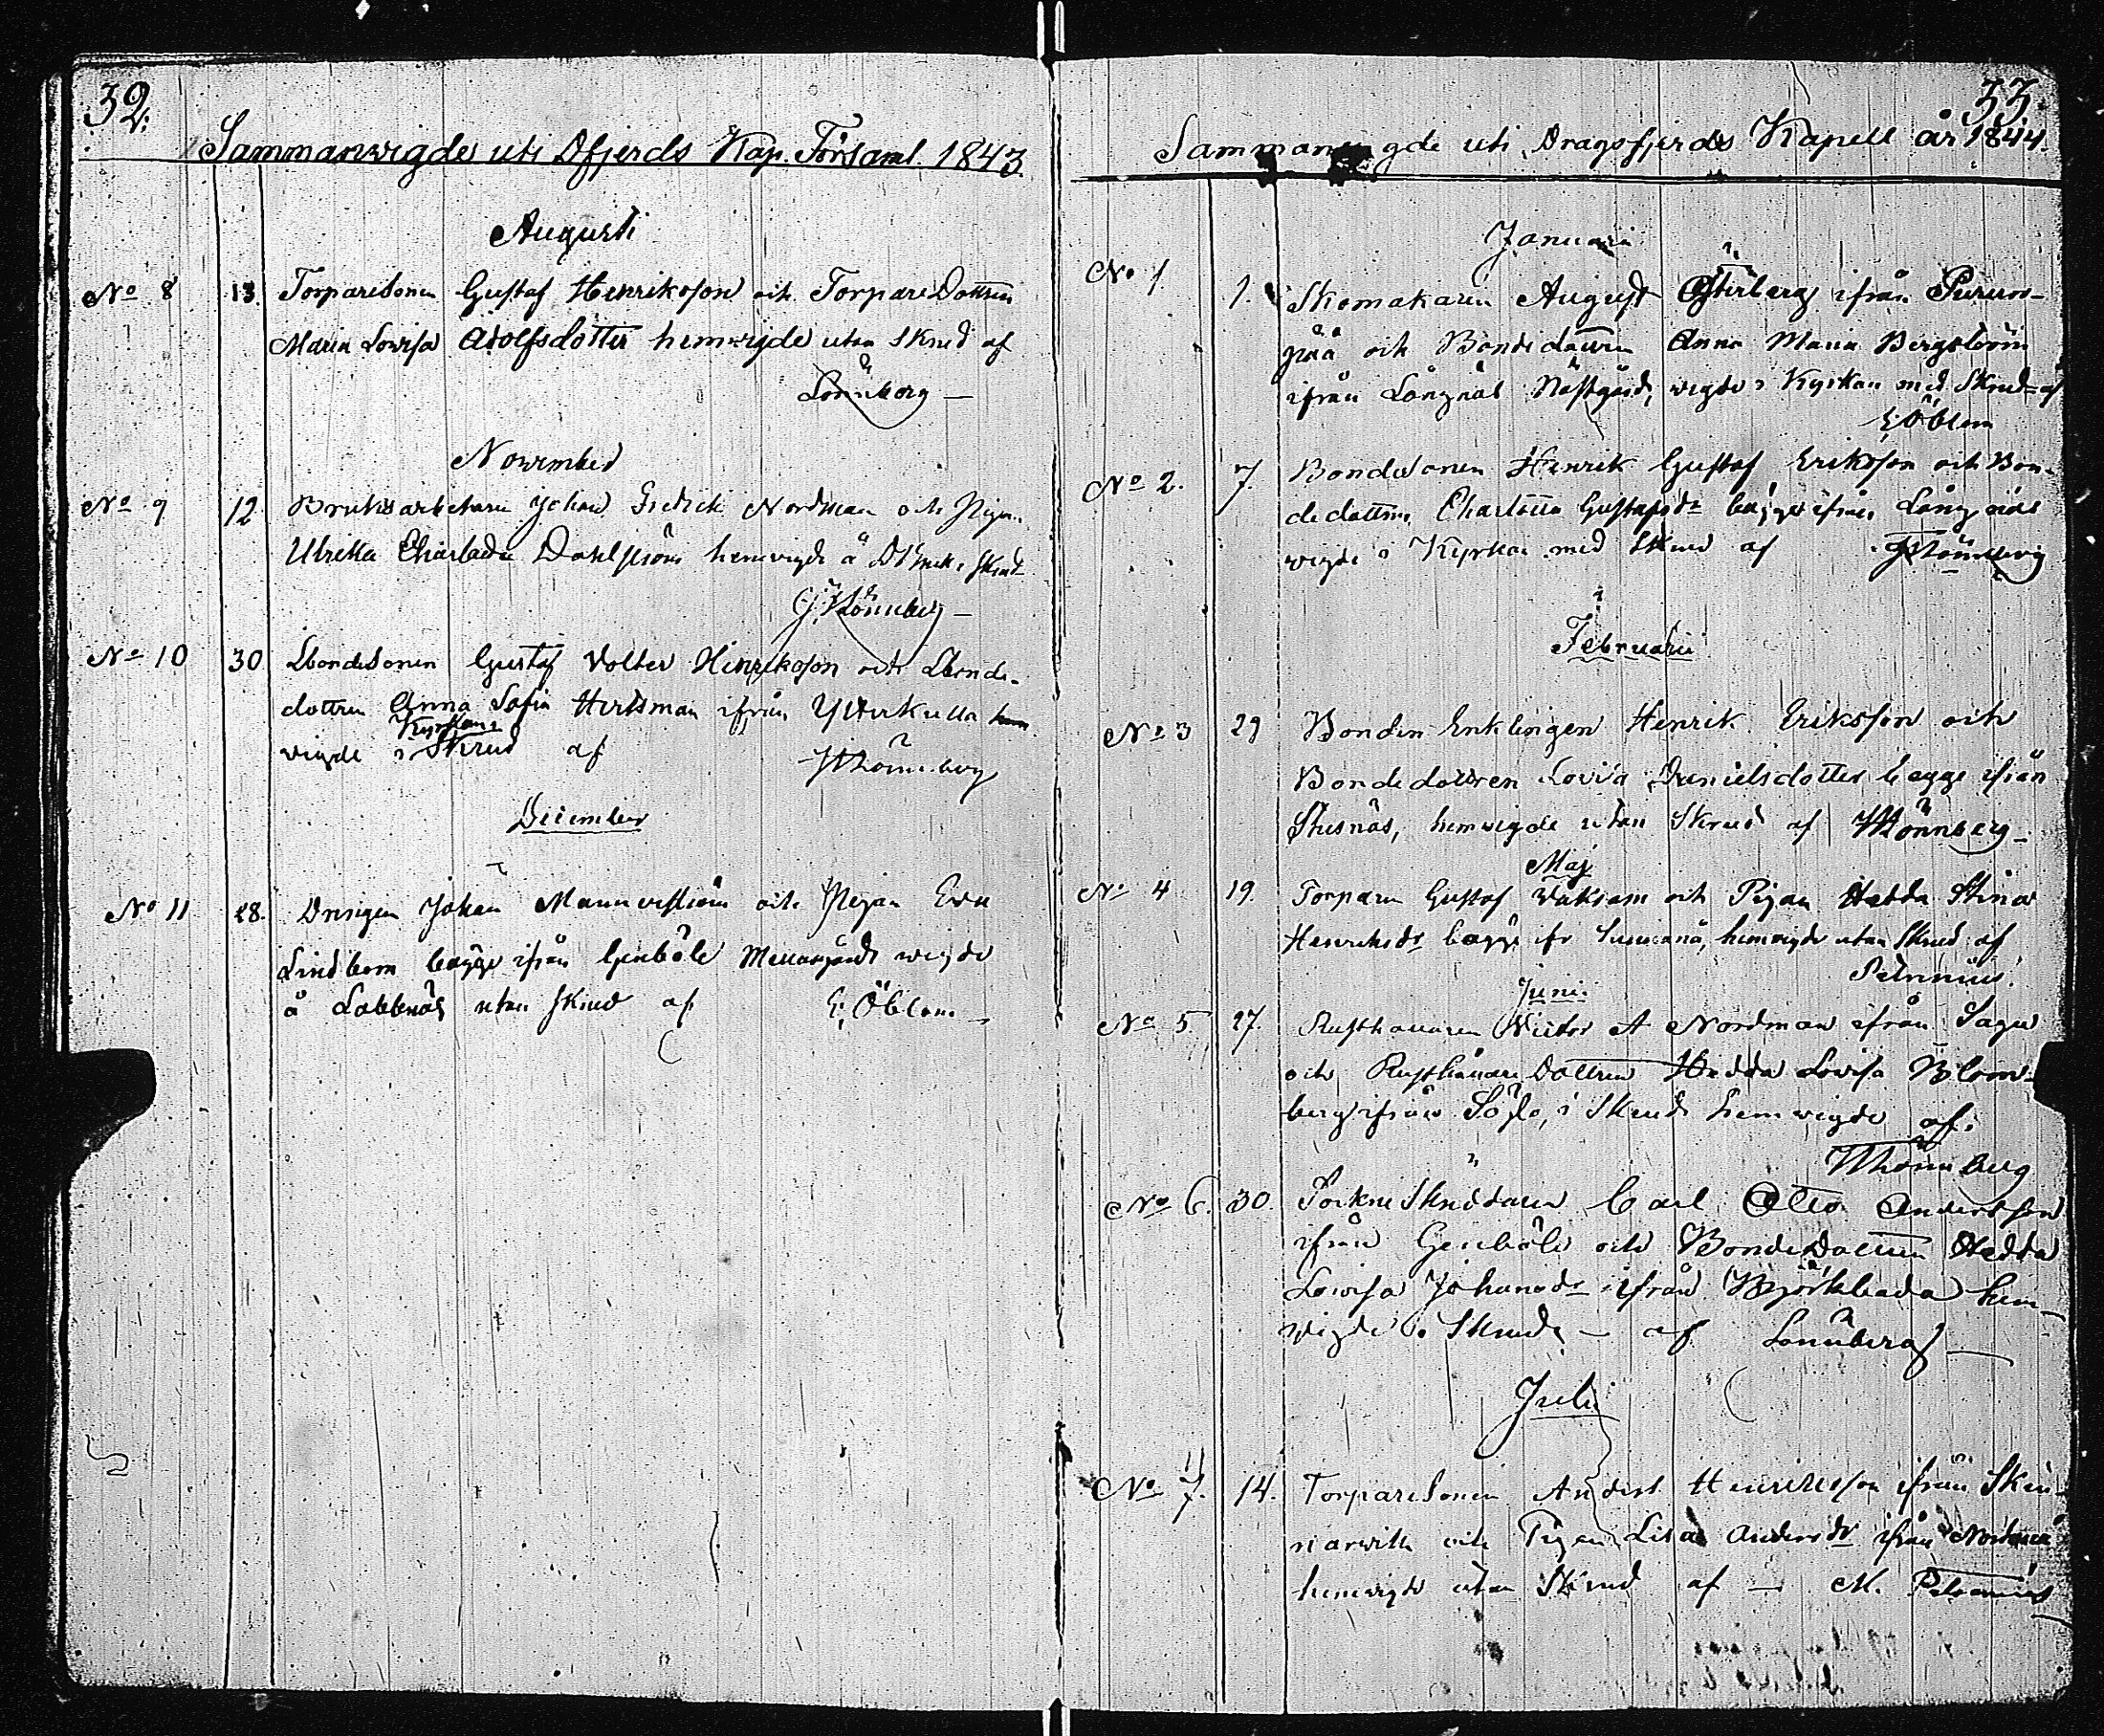 32.
Sammanwigde uti Dfjerds Kap. Församl. 1843.
Augusti
No 8 13. Torparesonen Gustaf Henriksson och TorpareDottren
Maria Lovisa Adolfsdotter hemwigde utan Skrud af
Lönnberg
November
No 9 12 Bruksarbetaren Johan Fredrich Nordman och Pigan
Ulrika Charlotta Dahlström hemvigde å DBruk i Skrud
Lönnberg
No 10 30 Bondesonen Gustaf Volter Henriksson och Bonde-
dottren Anna Sofia Hertsman ifrån Ytterkulla hem
Kyrkan i
vigde i Skrud af Lönnberg
December
No 11 28. Drengen Johan Mannerström och Pigan Eva
Lindbom bägge ifrån Genböle Mellangård wigde
å Labbnäs utan Skrud af E. Öblom
33.
Sammanwigde uti Dragsfjerds Kapell år 1844.
Januari
No 1. 1. Skomakaren August Österberg ifrån
och Bondedottren Anna Maria Bergström
ifrån Långnäs Västgård, wigde i Kyrkan med Skrud af
E Öblom
No 2. 7. Bondesonen Henrik Gustaf Eriksson och Bon-
dedottren Charlotta Gustafsdr bägge ifrån Långnäs
wigde i Kyrkan med Skrud af Lönnberg
Februari
No 3 29 Bonden Enklingen Henrik Eriksson och
Bondedottren Lovisa Danielsdotter bagge ifrån
Stusnäs, hemwigde utan Skrud af Lönnberg
Maj
No 4 19. Torparen Gustaf Waksam och Pigan Hedda Stina
Henriksdr bägge ifr hemvigde utan Skrud af
Petrenius.
Juni.
No 5. 27. Rusthållaren Victor A Nordman ifrån Sagu
och Rusthållare Dottren Hedda Lovisa Blom-
berg ifrån Söljo, i Skrud hemwigde af
Lönnberg
No 6. 30. SocknSkräddaren Carl Otto Andersson
ifrån Genböle och BondeDottren Hedda
Lovisa Johansdr ifrån Björkboda hem-
vigde i Skrud af Lönnberg
Juli
No 7. 14. Torparesonen Anders Henriksson ifrån Skin-
narwik och Pigan Lisa Andersdr ifrån Nordanå
hemvigde utan Skrud af M. Petrenius